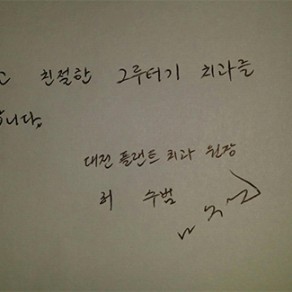 고 친절한 그루터기 치과를
니다.
대전 플랜트 치과 원장
최 수범